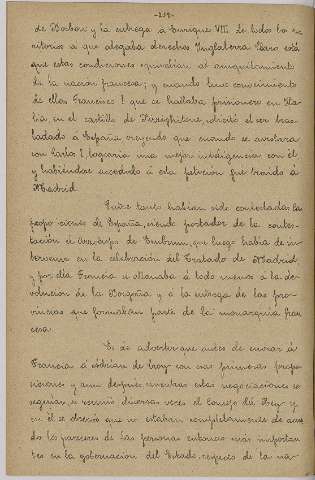 -212-
de Borbon y la entrega á Enrique VIII de todos los te-
rritorios a que alegaba derechos Inglaterra. Claro está
que estas condiciones equivalian al aniquilamiento
de la nacion francesa; y cuando tuvo conocimiento
de ellas Francisco I que se hallaba prisionero en Ita-
lia, en el castillo de Pizzighitone, solicitó el ser tras-
ladado á España creyendo que cuando se avistara
con Carlos I, lograria una mejor inteligencia con él
y habiendose accedido á esta peticion fue traido á
Madrid.
Entre tanto habian sido contestadas las
proposiciones de España, siendo portador de la contes-
tación el Arzobispo de Embrun, que luego habia de in-
tervenir en la celebración del Tratado de Madrid
y por ella Francia se allanaba á todo menos á la de-
volucion de la Borgoña y á la entrega de las pro-
vincias que formaban parte de la monarquia fran-
cesa.
Es de advertir que antes de enviar á
Francia á Adrian de Croy con sus primeras propo-
siciones y aun despues mientras estas negociaciones se
seguian, se reunió diversas veces el Consejo del Rey y
en él se observó que no estaban completamente de acuer-
do los pareceres de las personas entonces más importan-
tes en la gobernacion del Estado, respecto de la ma-